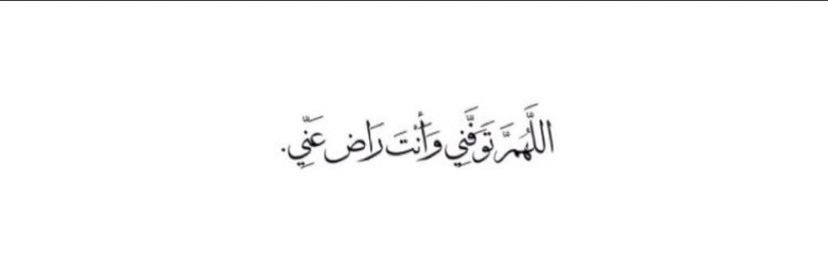 اللَّهُمَّ تَوَفَّنِي وَأَنْتَ رَاض عَنِّي.